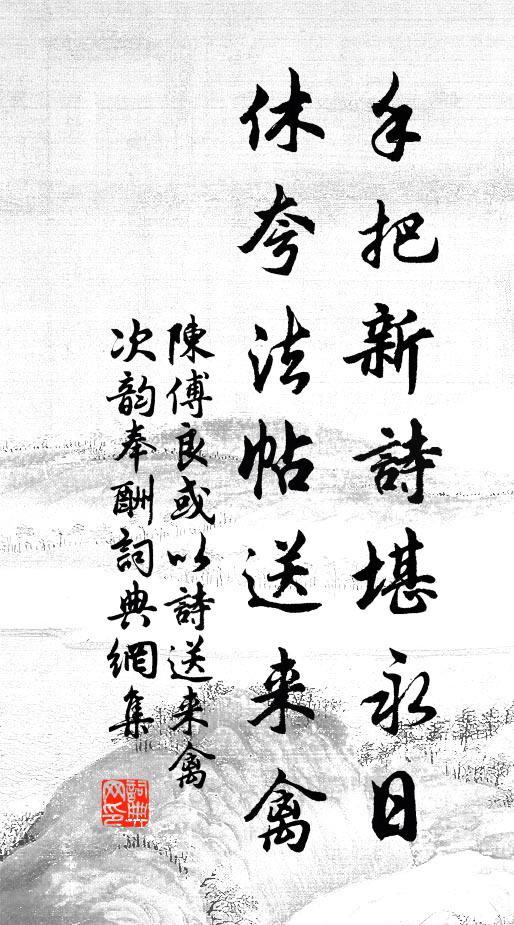 手把新詩堪永日
休夸法帖送来禽
陳傅良或以詩送来禽
次韵奉酬詞典網集
詞典
网印